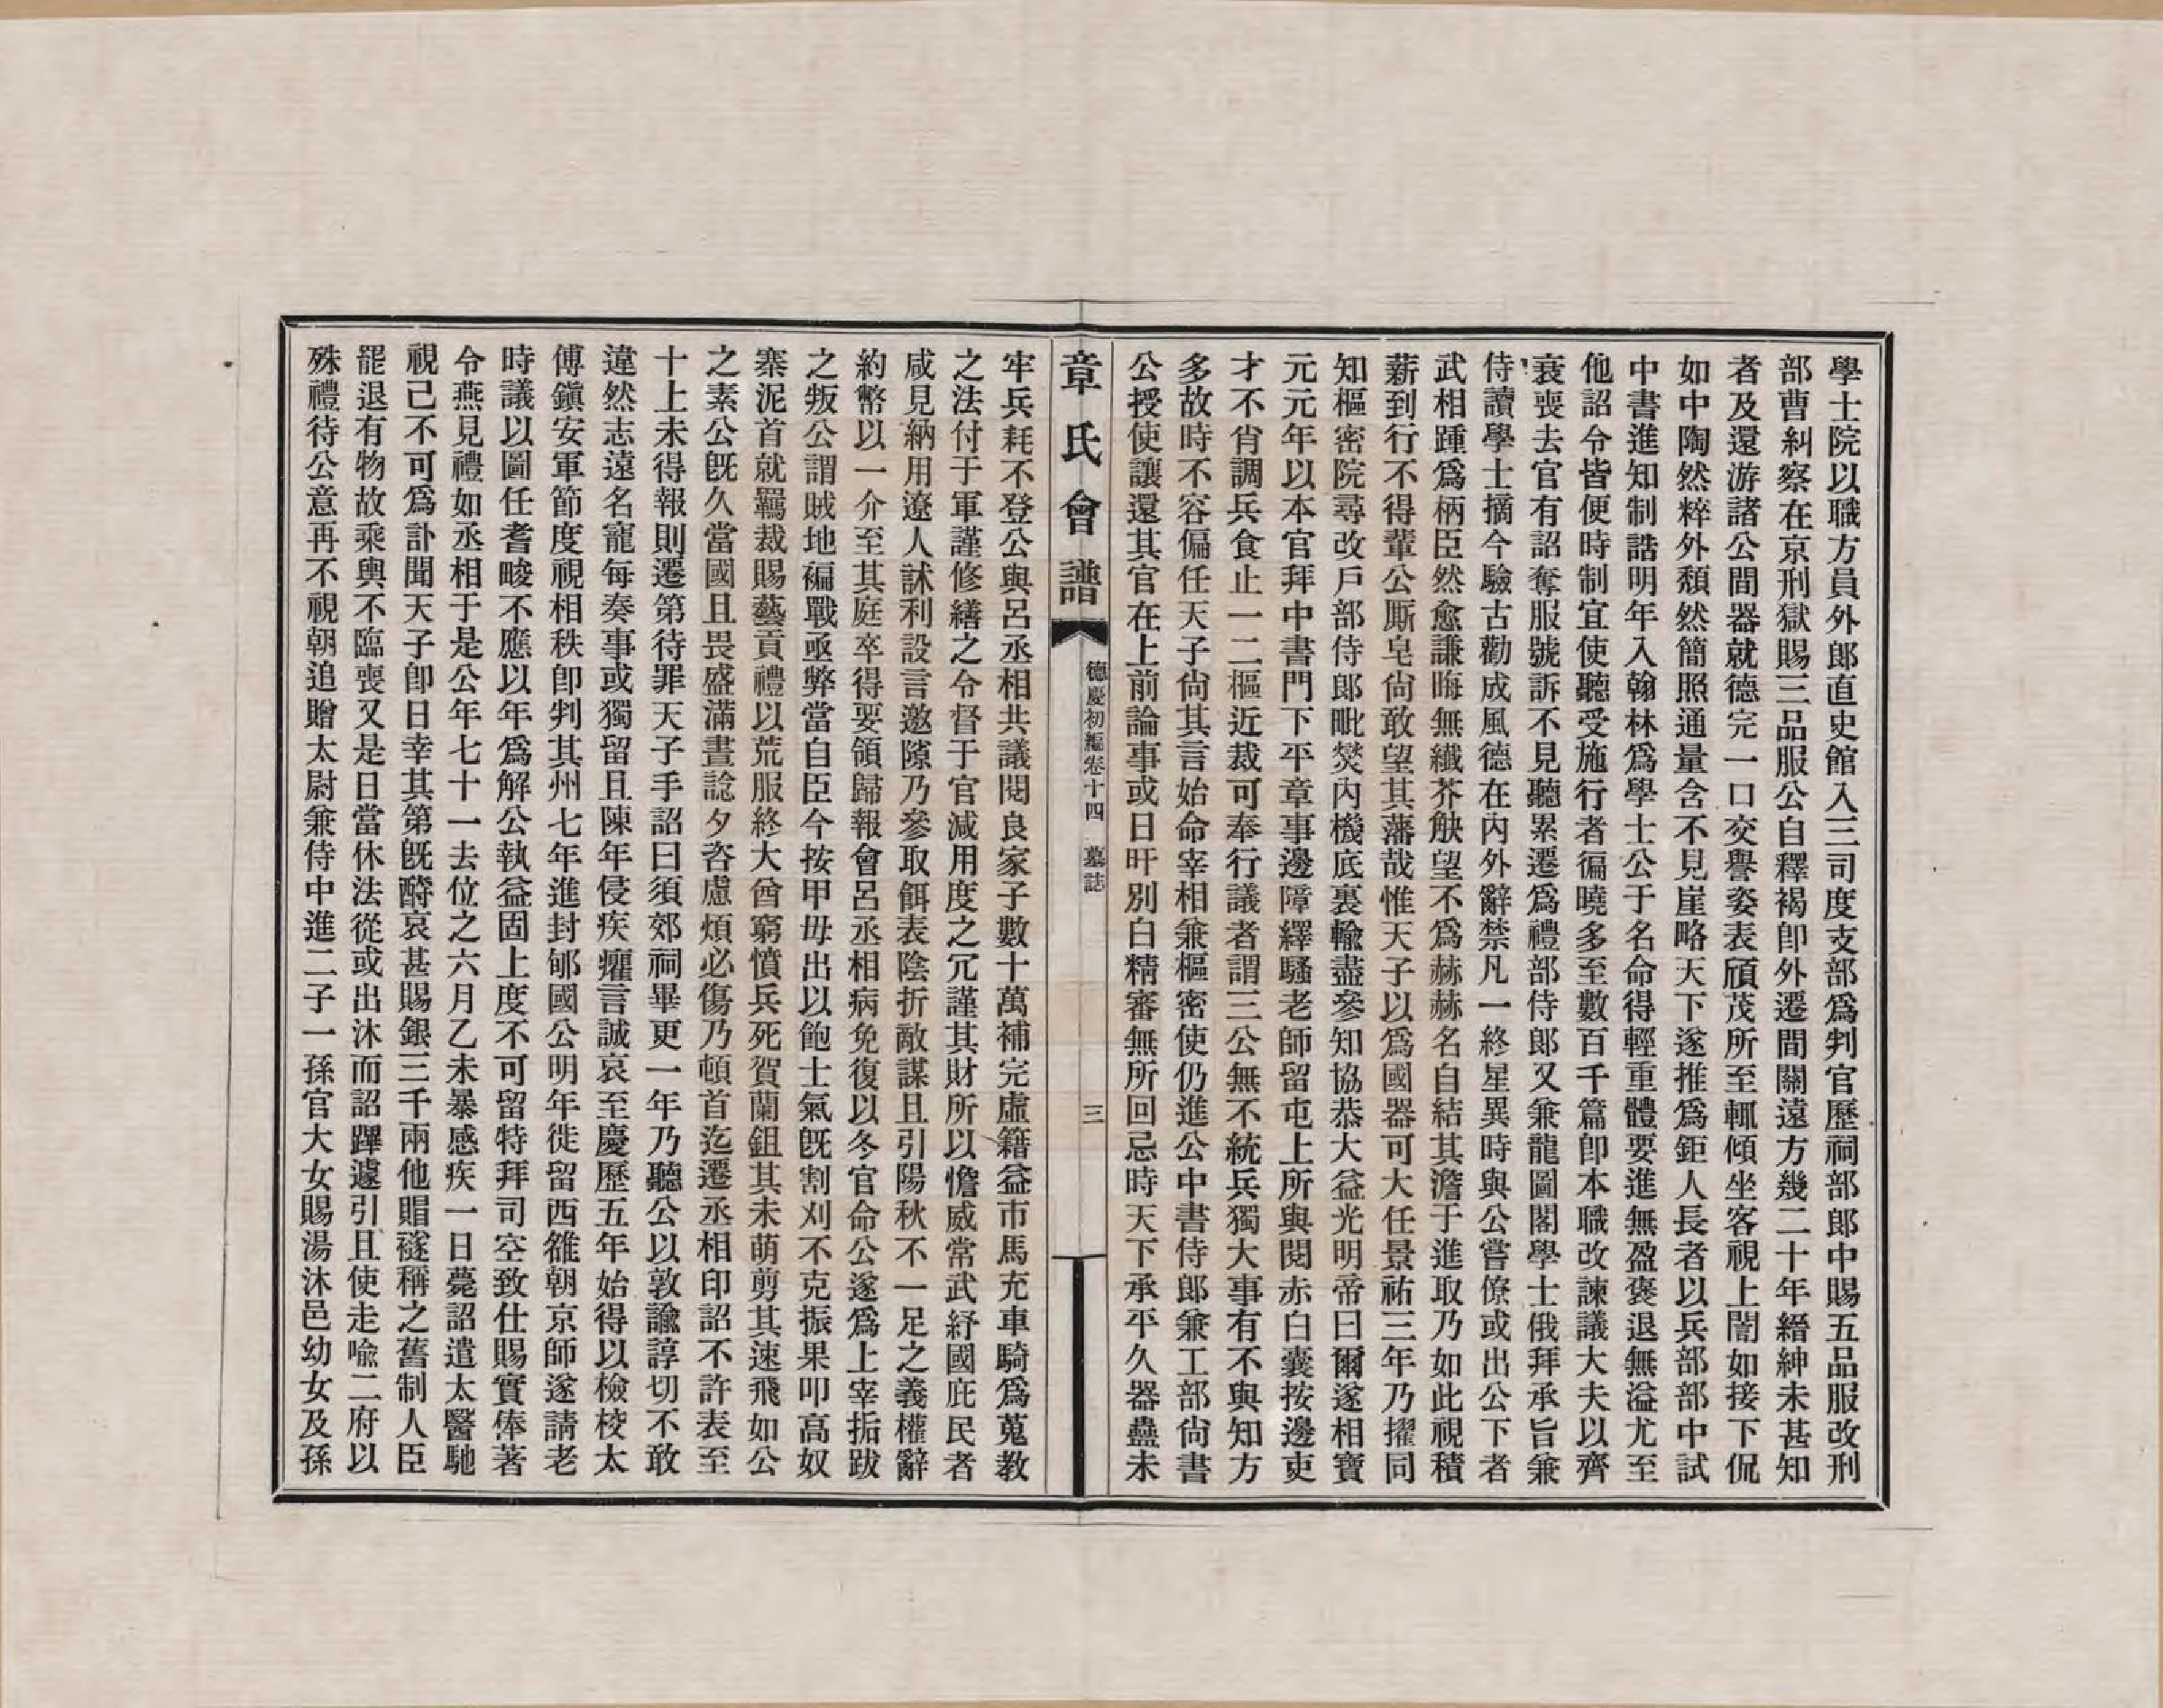 學士院以職方員外郎直史館入三司度支部爲判官歷祠部郎中賜五品服改刑
部曹糾察在京刑獄賜三品服公自釋褐卽外遷間關遠方幾二十年縉紳未甚知
者及還游諸公間器就德完一口交譽姿表頎茂所至輒傾坐客視上誾如接下侃
如中陶然粹外頹然簡照通量含不見崖略天下遂推爲鉅人長者以兵部郎中試
中書進知制誥明年入翰林爲學士公于名命得輕重體要進無盈褒退無溢尤至
他詔令皆便時制宜使聽受施行者徧曉多至數百千篇卽本職改諫議大夫以齊
衰喪去官有詔奪服號訴不見聽累遷爲禮部侍郎又兼龍圖閣學士俄拜承旨兼
侍讀學士摘今驗古勸成風德在內外辭禁凡一終星異時與公嘗僚或出公下者
武相踵爲柄臣然愈謙晦無纖芥觖望不爲赫赫名自結其澹于進取乃如此視積
薪到行不得輩公厮皂尙敢望其藩哉惟天子以爲國器可大任景祐三年乃擢同
知樞密院尋改戶部侍郎毗燓內機底裏輸盡參知協恭大益光明帝曰爾遂相寶
元元年以本官拜中書門下平章事邊障繹騷老師留屯上所與閱赤白囊按邊吏
才不肖調兵食止一二樞近裁可奉行議者謂三公無不統兵獨大事有不與知方
多故時不容偏任天子尙其言始命宰相兼樞密使仍進公中書侍郎兼工部尙書
公授使讓還其官在上前論事或日旰別白精審無所回忌時天下承平久器蠱未
章氏會譜
德慶初編卷十四 墓誌
三
牢兵耗不登公與呂丞相共議閱良家子數十萬補完虛籍益市馬充車騎爲蒐教
之法付于軍謹修繕之令督于官減用度之冗謹其財所以憺威常武紓國庇民者
咸見納用遼人訹利設言邀隙乃參取餌表陰折敵謀且引陽秋不一足之義權辭
約幣以一介至其庭卒得要領歸報會呂丞相病免復以冬官命公遂爲上宰拓跋
之叛公謂賊地褊戰亟弊當自臣今按甲毋出以飽士氣旣割刈不克振果叩高奴
寨泥首就羈裁賜藝貢禮以荒服終大酋窮憤兵死賀蘭鉏其未萌剪其速飛如公
之素公旣久當國且畏盛滿晝諗夕咨慮煩必傷乃頓首迄遷丞相印詔不許表至
十上未得報則遷第待罪天子手詔曰須郊祠畢更一年乃聽公以敦諭諄切不敢
違然志遠名寵每奏事或獨留且陳年侵疾癯言誠哀至慶歷五年始得以檢校太
傅鎭安軍節度視相秩卽判其州七年進封郇國公明年徙留西雒朝京師遂請老
時議以圖任耆畯不應以年爲解公執益固上度不可留特拜司空致仕賜實俸著
令燕見禮如丞相于是公年七十一去位之六月乙未暴感疾一日薨詔遣太醫馳
視已不可爲訃聞天子卽日幸其第旣酹哀甚賜銀三千兩他賵襚稱之舊制人臣
罷退有物故乘輿不臨喪又是日當休法從或出沐而詔蹕遽引且使走喩二府以
殊禮待公意再不視朝追贈太尉兼侍中進二子一孫官大女賜湯沐邑幼女及孫